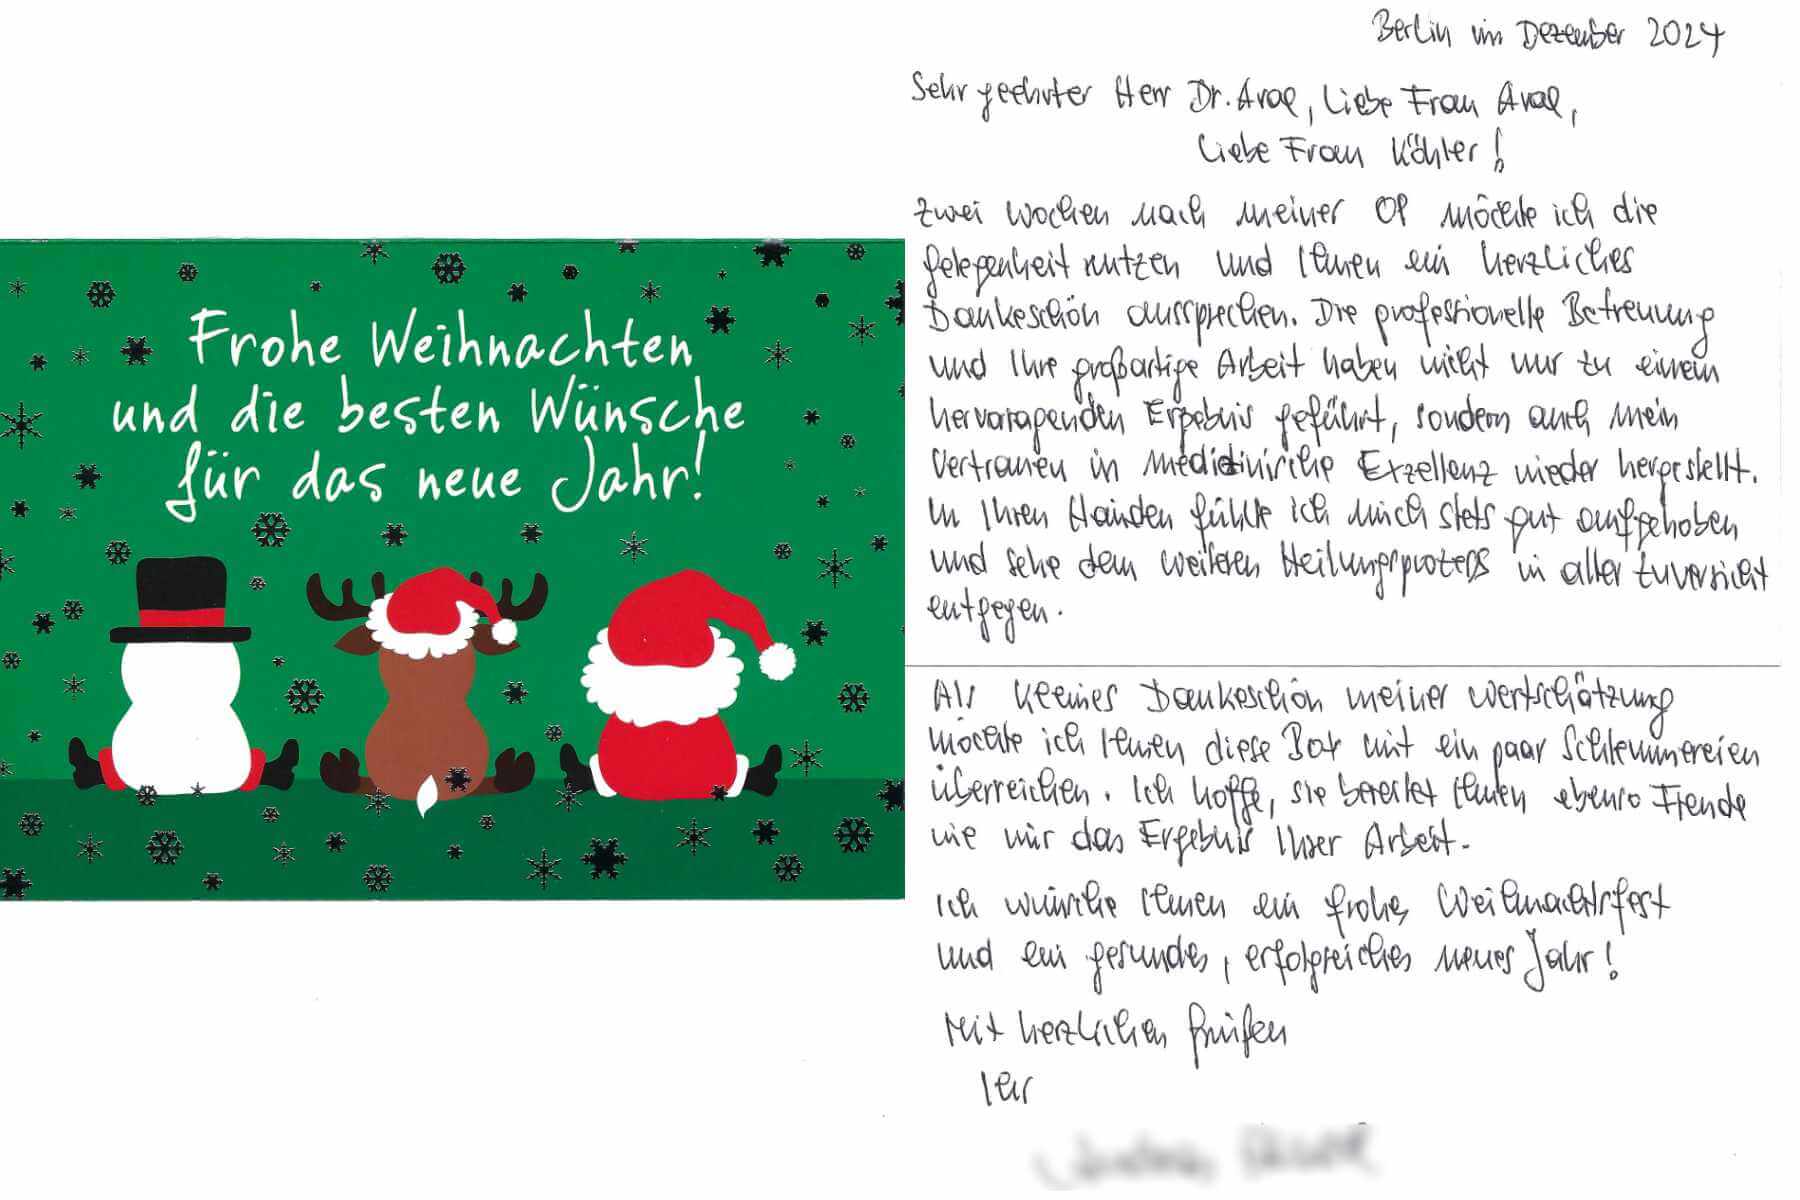 Frohe Weihnachten
und die besten Wünsche
für das neue Jahr!
Berlin im Dezember 2024
Sehr geehrter Herr Dr. Aral, Liebe Frau Aral,
Liebe Frau Köhler!
Zwei Wochen nach meiner OP möchte ich die
Gelegenheit nutzen und Ihnen ein herzliches
Dankeschön aussprechen. Die professionelle Betreuung
und Ihre großartige Arbeit haben nicht nur zu einem
hervorragenden Ergebnis geführt, sondern auch mein
Vertrauen in medizinische Exzellenz wieder hergestellt.
In Ihren Händen fühlte ich mich stets gut aufgehoben
und sehe dem weiteren Heilungsprozess in aller Zuversicht
entgegen.
Als kleines Dankeschön meiner Wertschätzung
möchte ich Ihnen diese Box mit ein paar Schlemmereien
überreichen. Ich hoffe, sie bereitet Ihnen ebenso Freude
wie mir das Ergebnis Ihrer Arbeit.
Ich wünsche Ihnen ein frohes Weihnachtsfest
und ein gesundes, erfolgreiches neues Jahr!
Mit herzlichen Grüßen
Ihr